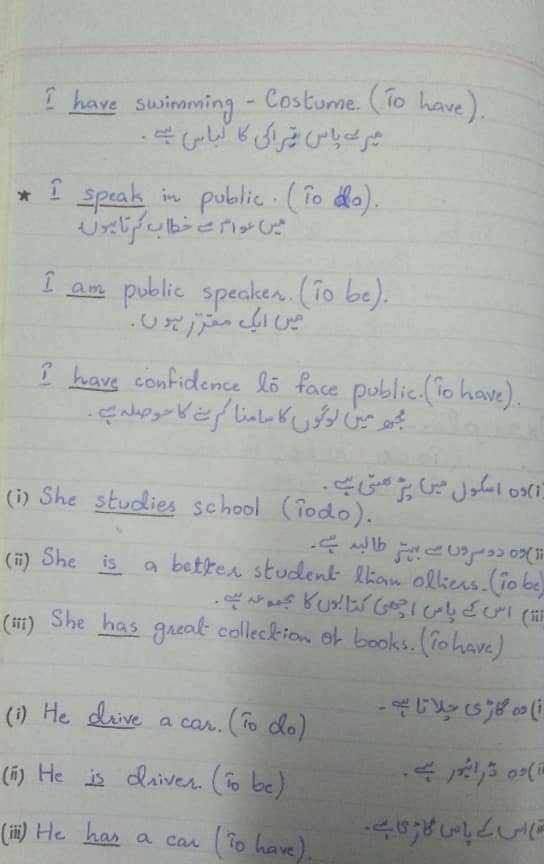 I have swimming - Costume. (To have).
میرے پاس تیراکی کا لباس ہے.
* I speak in public. (To do).
میں عوام سے خطاب کرتا ہوں
I am public speaker. (To be).
میں ایک مقرر ہوں.
I have confidence to face public. (To have).
مجھ میں لوگوں کا سامنا کرنے کا حوصلہ ہے.
i) وہ اسکول میں پڑھتی ہے.
(i) She studies school (To do).
ii) وہ دوسروں سے بہتر طالبہ ہے.
(ii) She is a better student than others. (To be)
iii) اس کے پاس اچھی کتابوں کا مجموعہ ہے.
(iii) She has great collection of books. (To have)
(i) He drive a car. (To do)
i) وہ گاڑی چلاتا ہے -
(ii) He is driver. (To be)
ii) وہ ڈرائیور ہے.
(iii) He has a car (To have)
iii) اس کے پاس گاڑی ہے.